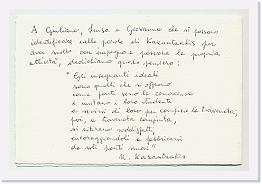 A Giuliano, Luisa e Giovanna che si possono
identificare nelle parole di Kazantzakis per
aver svolto con impegno e passione la propria
attività, dedichiamo questo pensiero:
" Gli insegnanti ideali
sono quelli che si offrono
come ponti verso la conoscenza
e invitano i loro studenti
a servirsi di loro per compiere la traversata;
poi, a traversata compiuta,
si ritirano soddisfatti,
incoraggiandoli a fabbricarsi
da soli ponti nuovi "
N. Kazantzakis